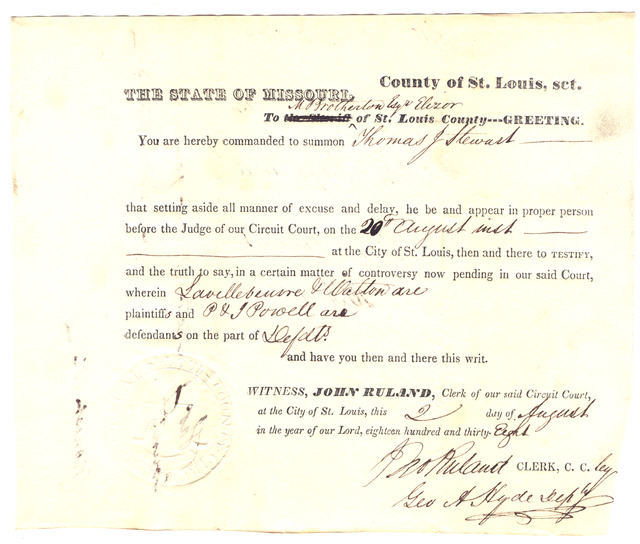 County of St. Louis, sct.
THE STATE OF MISSOURI,
M Brotherton Esqr Elizor
To the Sheriff of St. Louis County---GREETING.
You are hereby commanded to summon Thomas J Stewart
that setting aside all manner of excuse and delay, he be and appear in proper person
before the Judge of our Circuit Court, on the 20th August inst
at the City of St. Louis, then and there to TESTIFY,
and the truth to say, in a certain matter of controversy now pending in our said Court,
wherein Lavillebeuvre & Walton are
plaintiffs and P & J Powell are
defendants on the part of Defdts.
and have you then and there this writ.
WITNESS, JOHN RULAND, Clerk of our said Circuit Court,
at the City of St. Louis, this 2 day of August
in the year of our Lord, eighteen hundred and thirty-Eight
Jno Ruland CLERK, C. C. by
Geo A Hyde Depy